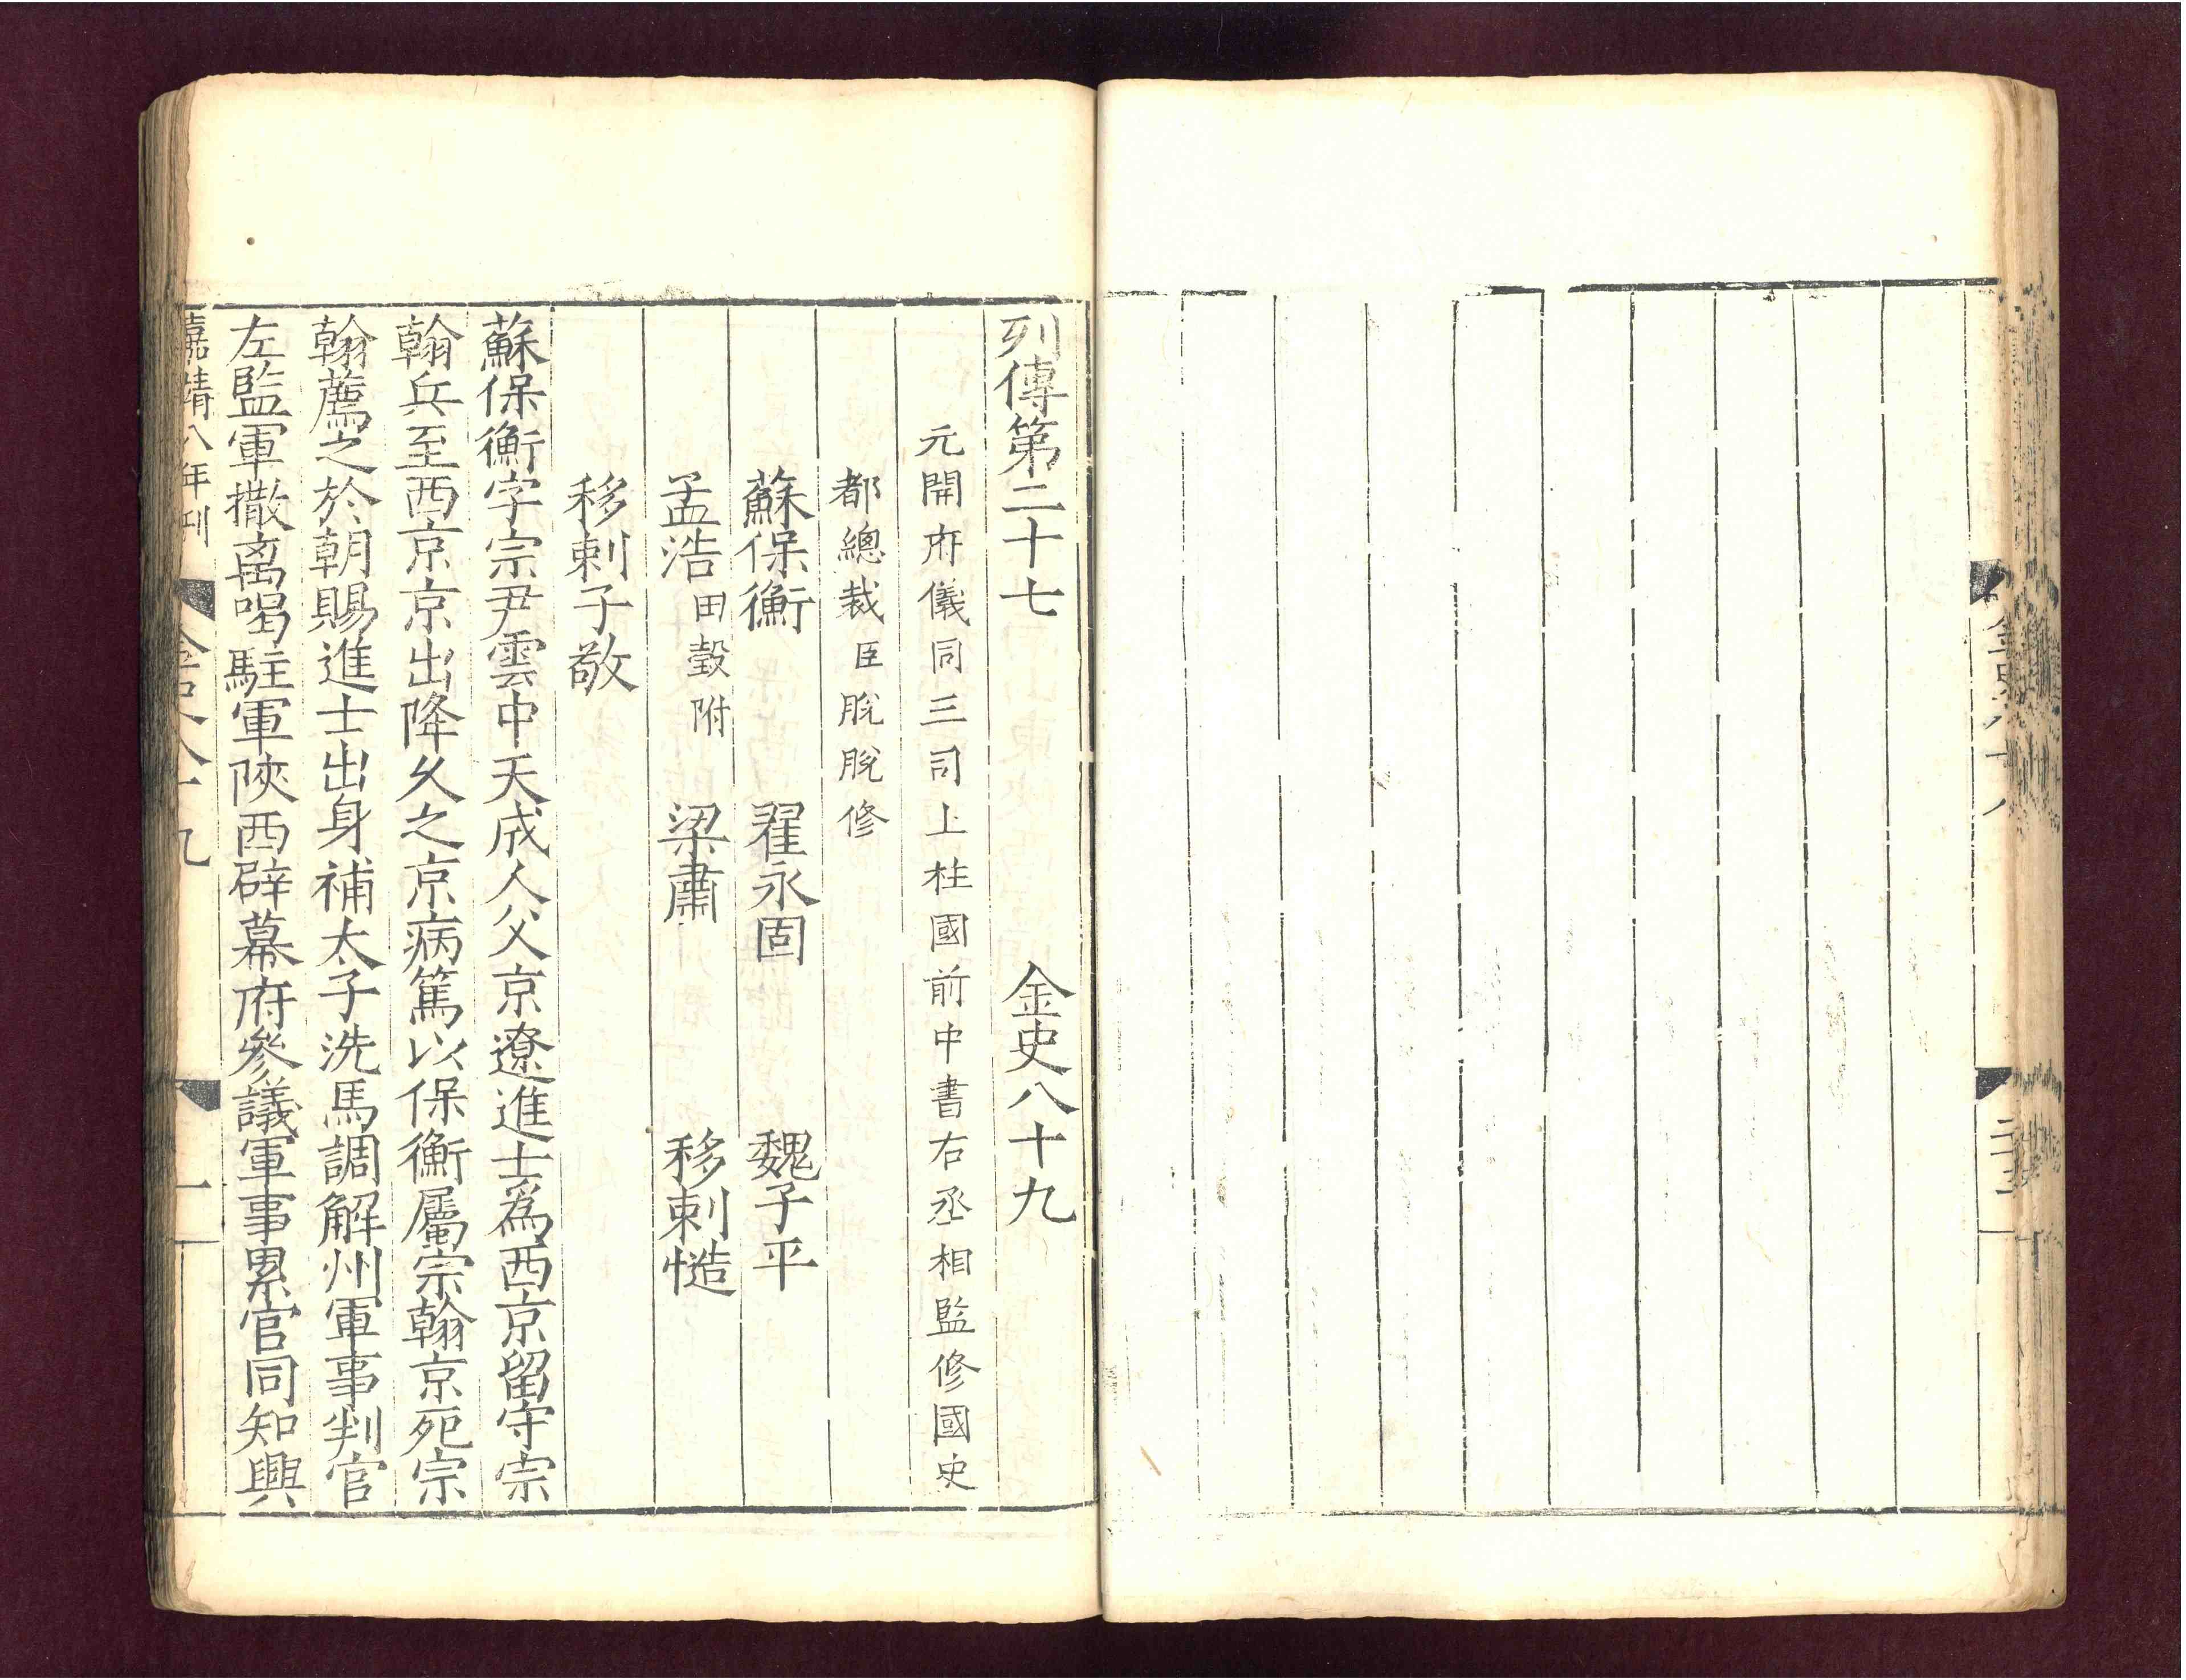 金史八十八
二十五
列傳第二十七 金史八十九
元開府儀同三司上柱國前中書右丞相監修國史
都總裁臣脫脫修
蘇保衡 翟永固 魏子平
孟浩 田瑴附 梁肅 移剌慥
移剌子敬
蘇保衡字宗尹雲中天成人父京遼進士爲西京留守宗
翰兵至西京京出降久之京病篤以保衡屬宗翰京死宗
翰薦之於朝賜進士出身補太子洗馬調解州軍事判官
左監軍撒离喝駐軍陝西辟幕府參議軍事累官同知興
嘉靖八年刊
金史八十九
一